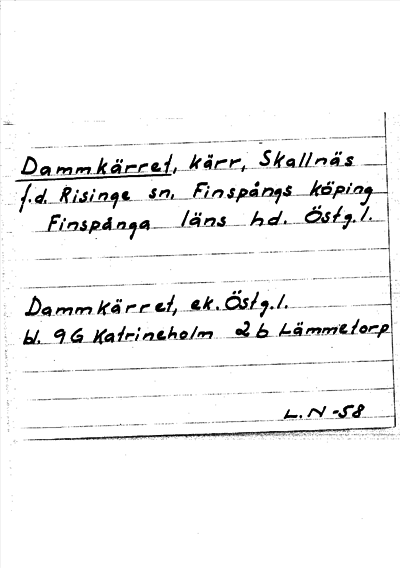 Dammkärret, kärr, Skallnäs
f.d. Risinge sn, Finspångs köping
Finspånga läns hd. Östg.l.
Dammkärret, ek. Östg.l.
bl. 9G Katrineholm 2b Lämmetorp
L.N -58